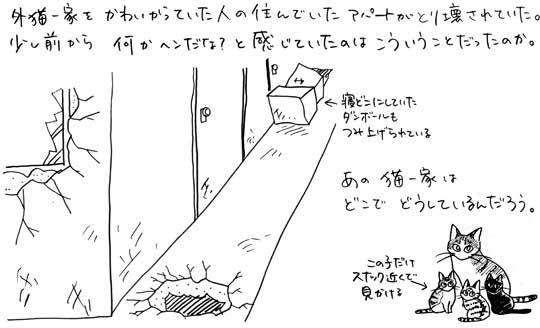 外猫一家をかわいがっていた人の住んでいたアパートがとり壊されていた。
少し前から何かヘンだな?と感じていたのはこういうことだったのか。
寝どこにしていた
ダンボールも
つみ上げられている
あの猫一家は
どこでどうしているんだろう。
この子だけ
スナック近くで
見かける